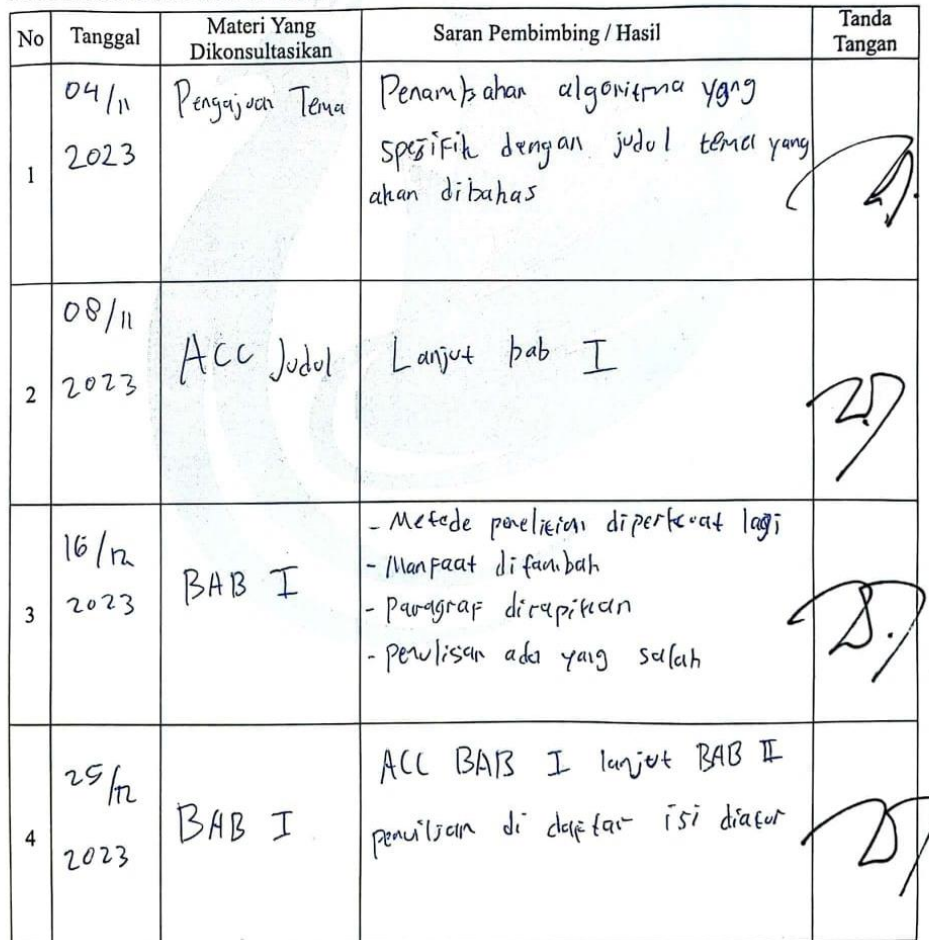 No Tanggal Materi Yang Dikonsultasikan Saran Pembimbing / Hasil Tanda Tangan
1
04/11
2023
Pengajuan Tema
Penambahan algoritma yang
spesifik dengan judul tema yang
akan dibahas
2
08/11
2023
ACC Judul
Lanjut bab I
3
16/12
2023
BAB I
- Metode penelitian diperkuat lagi
- Manfaat ditambah
- Paragraf dirapikan
- Penulisan ada yang salah
4
25/12
2023
BAB I
ACC BAB I lanjut BAB II
penulisan di daftar isi diatur